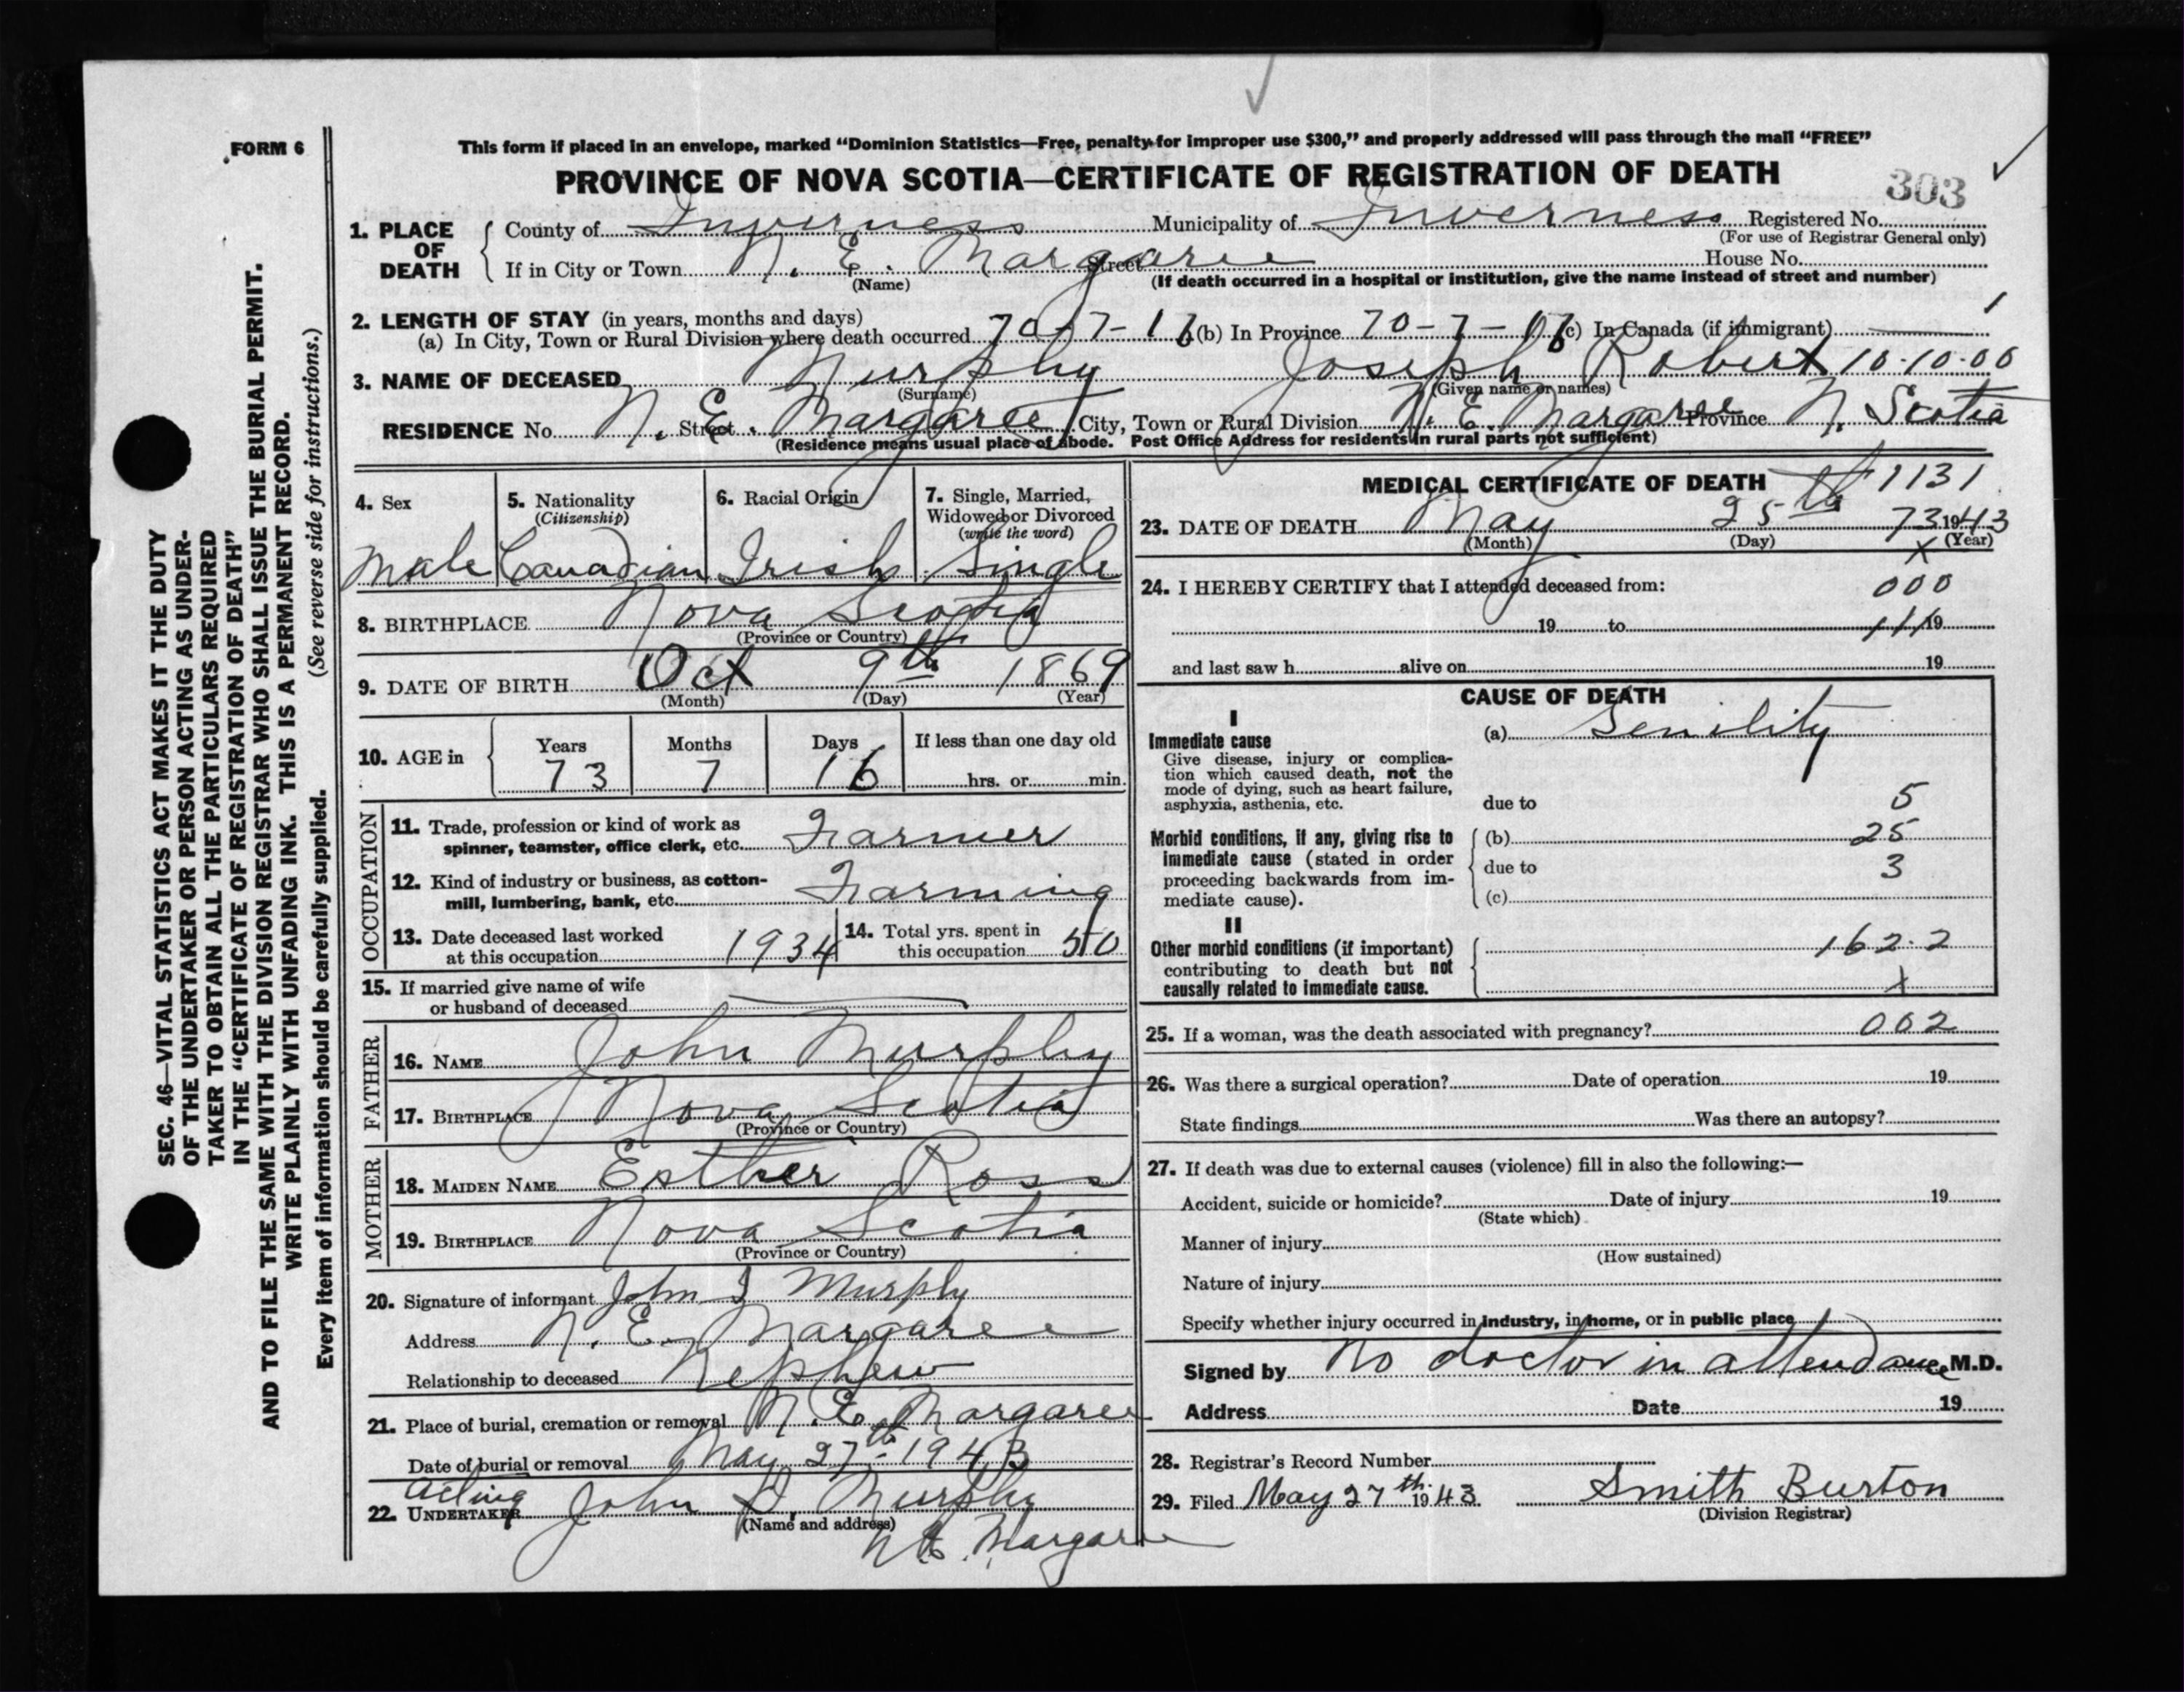 FORM 6
This form if placed in an envelope, marked “Dominion Statistics—Free, penalty for improper use $300,” and properly addressed will pass through the mail “FREE”
PROVINCE OF NOVA SCOTIA—CERTIFICATE OF REGISTRATION OF DEATH
303
1. PLACE OF DEATH
County of Inverness Municipality of Inverness Registered No.
(For use of Registrar General only)
If in City or Town N. E. Margaree Street House No.
(Name) (If death occurred in a hospital or institution, give the name instead of street and number)
2. LENGTH OF STAY (in years, months and days)
(a) In City, Town or Rural Division where death occurred 70-7-16 (b) In Province 70-7-16 (c) In Canada (if immigrant)
3. NAME OF DECEASED Murphy Joseph Robert 10-10-00
(Surname) (Given name or names)
RESIDENCE No. N. E. Margaree Street City, Town or Rural Division N. E. Margaree Province N. Scotia
(Residence means usual place of abode. Post Office Address for residents in rural parts not sufficient)
4. Sex
Male
5. Nationality
(Citizenship)
Canadian
6. Racial Origin
Irish
7. Single, Married,
Widowed or Divorced
(write the word)
Single
8. BIRTHPLACE Nova Scotia
(Province or Country)
9. DATE OF BIRTH Oct 9th 1869
(Month) (Day) (Year)
10. AGE in
Years Months Days If less than one day old
73 7 16 hrs. or min.
OCCUPATION
11. Trade, profession or kind of work as
spinner, teamster, office clerk, etc. Farmer
12. Kind of industry or business, as cotton-
mill, lumbering, bank, etc. Farming
13. Date deceased last worked
at this occupation 1934
14. Total yrs. spent in
this occupation 50
15. If married give name of wife
or husband of deceased
FATHER
16. NAME John Murphy
17. BIRTHPLACE Nova Scotia
(Province or Country)
MOTHER
18. MAIDEN NAME Esther Ross
19. BIRTHPLACE Nova Scotia
(Province or Country)
20. Signature of informant John I Murphy
Address N. E. Margaree
Relationship to deceased Nephew
21. Place of burial, cremation or removal N. E. Margaree
Date of burial or removal May 27th 1943
Acting
22. UNDERTAKER John D. Murphy
(Name and address)
N E. Margaree
MEDICAL CERTIFICATE OF DEATH 1131
23. DATE OF DEATH May 25th 73 1943
(Month) (Day) (Year)
X
24. I HEREBY CERTIFY that I attended deceased from:
000
19 to 111 19
and last saw h alive on 19
CAUSE OF DEATH
I
Immediate cause
Give disease, injury or complica-
tion which caused death, not the
mode of dying, such as heart failure,
asphyxia, asthenia, etc.
(a) Senility
due to 5
Morbid conditions, if any, giving rise to
immediate cause (stated in order
proceeding backwards from im-
mediate cause).
(b) 25
due to 3
(c)
II
Other morbid conditions (if important)
contributing to death but not
causally related to immediate cause.
162.2
X
25. If a woman, was the death associated with pregnancy? 002
26. Was there a surgical operation? Date of operation 19
State findings Was there an autopsy?
27. If death was due to external causes (violence) fill in also the following:—
Accident, suicide or homicide? Date of injury 19
(State which)
Manner of injury
(How sustained)
Nature of injury
Specify whether injury occurred in industry, in home, or in public place
Signed by No doctor in attendance M.D.
Address Date 19
28. Registrar's Record Number
29. Filed May 27th 1943 Smith Burton
(Division Registrar)
SEC. 46—VITAL STATISTICS ACT MAKES IT THE DUTY
OF THE UNDERTAKER OR PERSON ACTING AS UNDER-
TAKER TO OBTAIN ALL THE PARTICULARS REQUIRED
IN THE “CERTIFICATE OF REGISTRATION OF DEATH”
AND TO FILE THE SAME WITH THE DIVISION REGISTRAR WHO SHALL ISSUE THE BURIAL PERMIT.
WRITE PLAINLY WITH UNFADING INK. THIS IS A PERMANENT RECORD.
Every item of information should be carefully supplied. (See reverse side for instructions.)